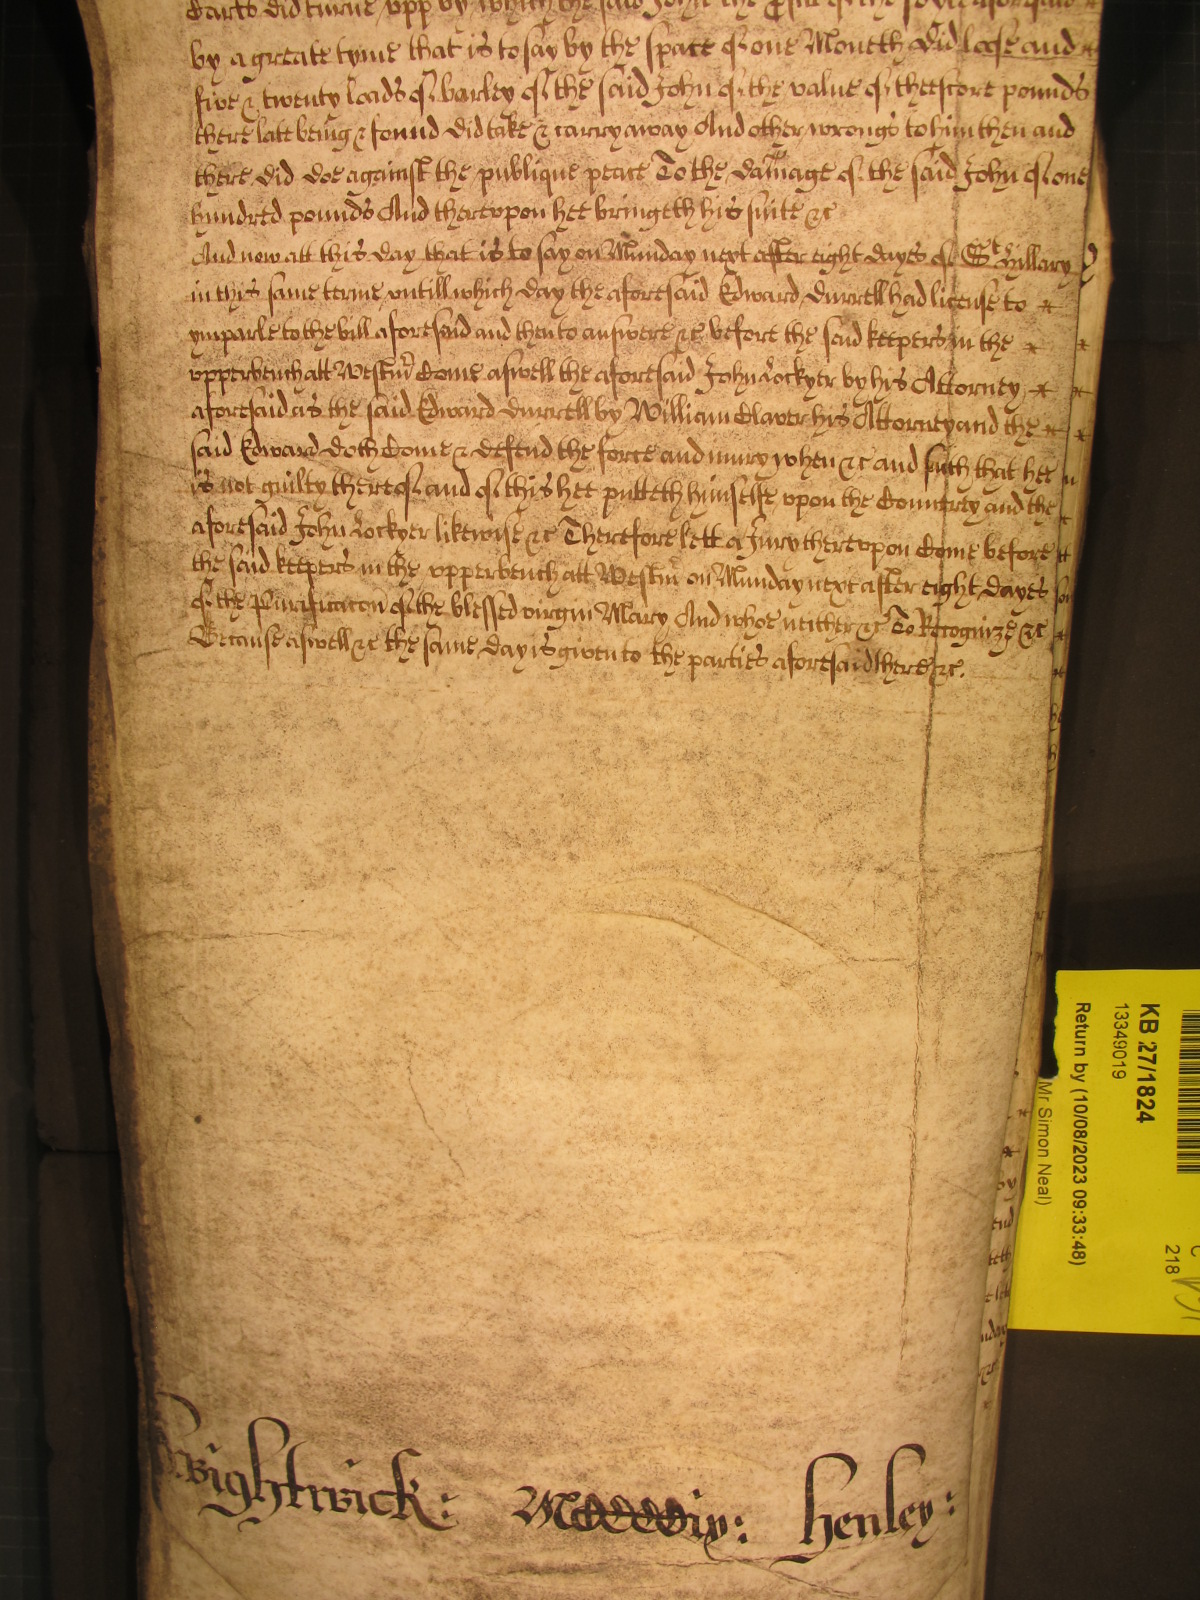 Carts did turne upp by which the said John the profitt of the soile aforesaid
by a greate tyme that is to say by the space of one Moneth did lose and
five & twenty loads of barley of the said John of the value of theescore pounds
there late being & found did take & carry away And other wrongs to him then and
there did doe against the publique peace To the damage of the said John of one
hundred pounds And thereupon hee bringeth his suite &c
And now att this day that is to say on Munday next after eight dayes of St Hillary
in this same terme untill which day the aforesaid Edward Durrell had license to
ymparle to the bill aforesaid and then to answere &c before the said keepers in the
upperbench att Westm Come aswell the aforesaid John Lockyer by his Attorney
aforesaid as the said Edward Durrell by William Claver his Attorney and the
said Edward doth Come & defend the force and iniury when &c and saith that hee
is not guilty thereof and of this hee putteth himselfe upon the Countrey and the
aforesaid John Lockyer likewise &c Therefore lett a Jury thereupon Come before
the said keepers in the upperbench att Westm on Munday next after eight dayes
of the Purificacon of the blessed virgin Mary And whoe neither &c To Recognize &c
Because aswell &c the same day is given to the parties aforesaid there &c.
Wightwick: Henley:
KB 27/1824
13349019
Return by (10/08/2023 09:33:48)
Mr Simon Neal)
218